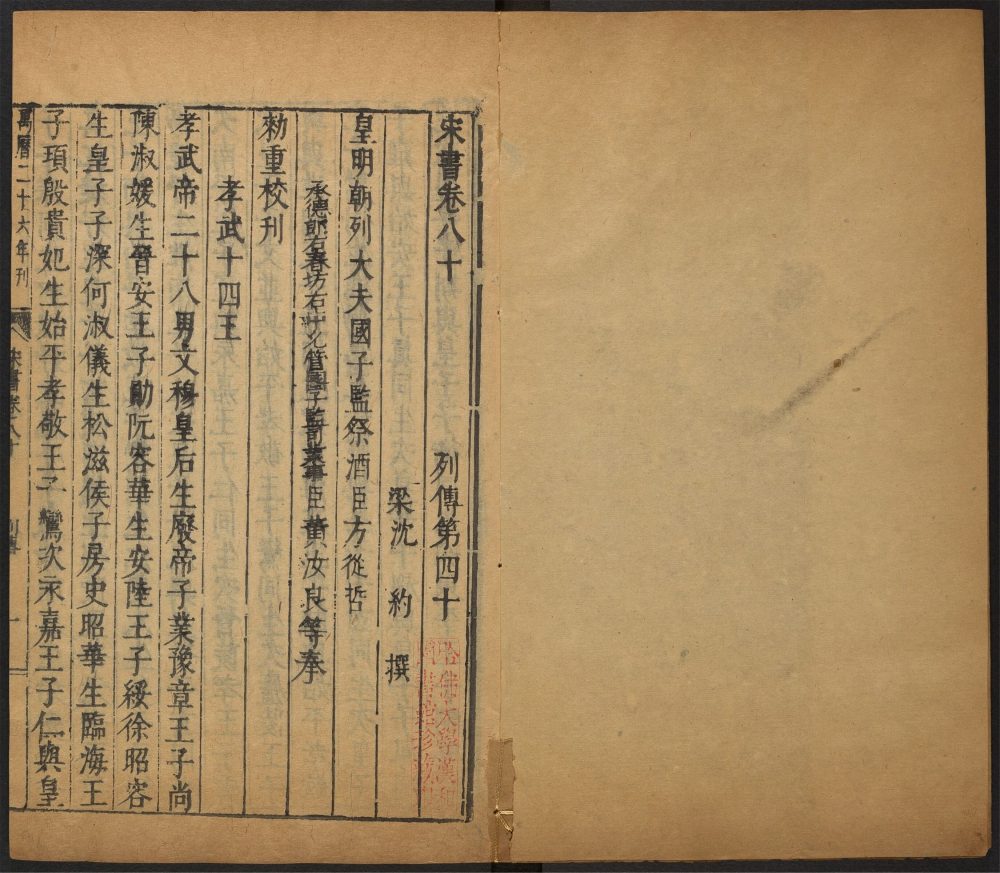 宋書卷八十 列傳第四十
梁沈 約 撰
皇明朝列大夫國子監祭酒臣方從哲
承德郎右春坊右中允管國子監司業事臣黃汝良等奉
勑重校刊
孝武十四王
孝武帝二十八男文穆皇后生廢帝子業豫章王子尚
陳淑媛生晉安王子勛阮容華生安陸王子綏徐昭容
生皇子子深何淑儀生松滋侯子房史昭華生臨海王
子頊殷貴妃生始平孝敬王子鸞次永嘉王子仁與皇
萬曆二十六年刊 宋書卷八十 列傳 一
哈佛大學漢和
圖書館珍藏印